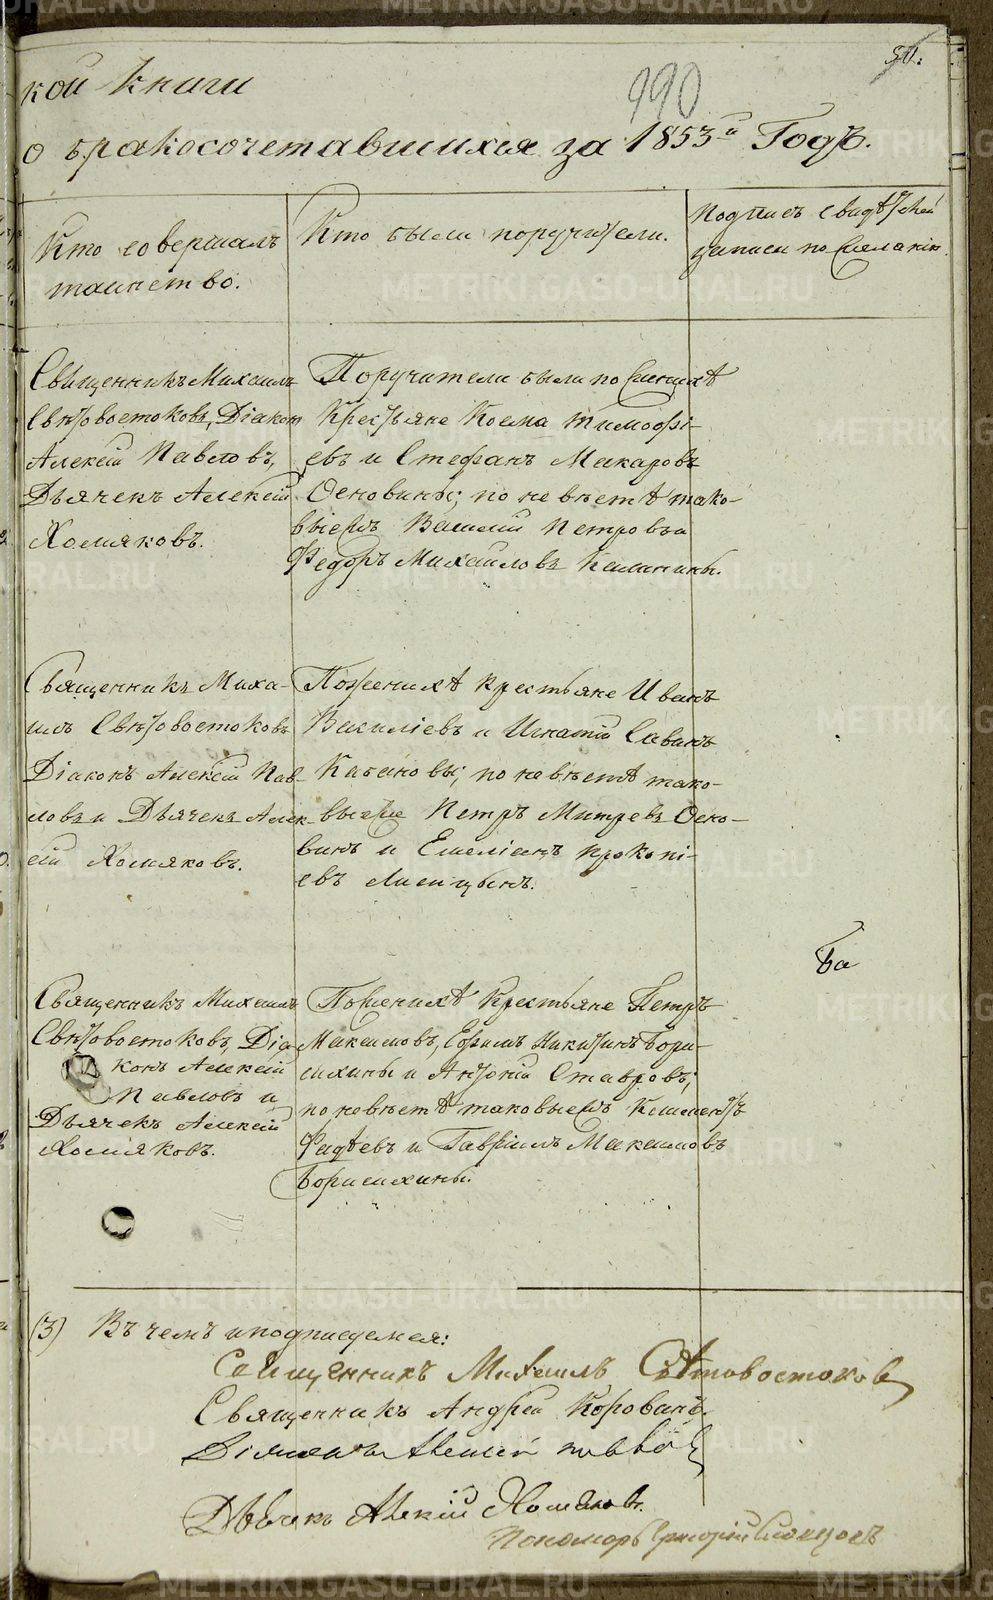 50.
990
кой Книги
о бракосочетавшихся за 1853й Годъ.
Кто совершалъ
таинство.
Кто были поручители.
Подпись свидѣтелей
записи по желанію.
Священникъ Михаилъ
Свѣтовостоковъ, Діаконъ
Алексій Павловъ,
Дьячекъ Алексій
Хомяковъ.
Поручители были по женихѣ
Крестьяне Косма Тимофі-
евъ и Стефанъ Макаровъ
Осковины; по невѣстѣ тако-
выежъ Василій Петровъ и
Федоръ Михаиловъ Калинины.
Священникъ Миха-
илъ Свѣтовостоковъ
Діаконъ Алексій Пав-
ловъ и Дьячекъ Алек-
сій Хомяковъ.
По женихѣ крестьяне Иванъ
Василіевъ и Игнатій Савинъ
по невѣстѣ тако-
выеже Петръ Митревъ Оско-
винъ и Емеліанъ Прокопі-
евъ Лисицынъ.
Ба
Священникъ Михаилъ
Свѣтовостоковъ, Діа
конъ Алексій
Павловъ и
Дьячекъ Алексій
Хомяковъ.
По женихѣ Крестьяне Петръ
Максимовъ, Ефимъ Никитинъ Бори-
сихины и Антоній Ставровъ;
по невѣстѣ таковыежъ Климентъ
Фадѣевъ и Гавріилъ Максимовъ
Борисихины.
(3) Въ чемъ и подписуемся:
Священникъ Михаилъ Свѣтовостоковъ
Священникъ Андрей Коровинъ
Діаконъ Алексій Павловъ
Дьячекъ Алексій Хомяковъ.
Пономарь Григорій
METRIKI.GASO-URAL.RU